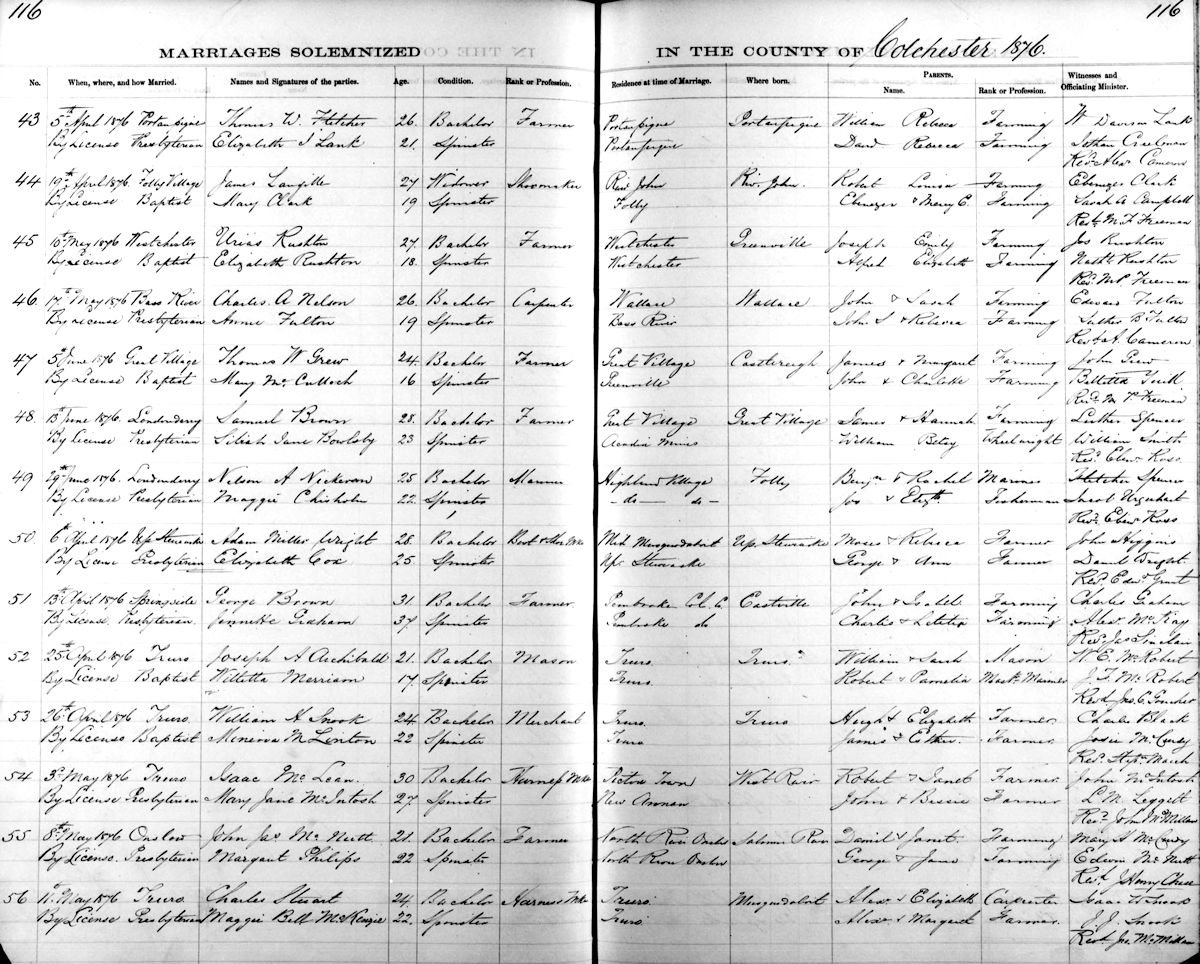 116 116
MARRIAGES SOLEMNIZED IN THE COUNTY OF Colchester 1876.
No. When, where, and how Married. Names and Signatures of the parties. Age. Condition. Rank or Profession. Residence at time of Marriage. Where born. PARENTS. Name. Rank or Profession. Witnesses and Officiating Minister.
43 5th April 1876 Portaupique Thomas W. Fletcher 26. Bachelor Farmer Portaupique Portaupique William Rebecca Farming W Dawson Lank
By License Presbyterian Elizabeth J Lank 21. Spinster Portaupique David Rebecca Farming
Revd Alexr Cameron
44 19th April 1876. Folly Village James Langille 27 Widower Shoemaker River John River John. Robert Louisa Farming Ebenezer Clark
By License Baptist Mary Clark 19 Spinster Folly Ebenezer & Mary E. Farming Sarah A Campbell
Revd M. P. Freeman
45 10th May 1876 Westchester Urias Rushton 27. Bachelor Farmer Westchester Granville Joseph Emily Farming Jos Rushton
By License Baptist Elizabeth Rushton 18. Spinster Westchester Alfred Elizabeth Farming Rushton
Revd M.P. Freeman
46. 17th May 1876 Bass River Charles A Nelson 26. Bachelor Carpenter Wallace Wallace John & Sarah Farming Edward Fulton
By License Presbyterian Annie Fulton 19 Spinster Bass River John S & Rebecca Farming Luther B. Fulton
Revd A. Cameron
47 5th June 1876 Great Village Thomas W Grew 24. Bachelor Farmer Great Village Castlereigh James & Margaret Farming John
By License Baptist Mary McCulloch 16 Spinster John & Charlotte Farming
Revd M. P. Freeman
48. 13th June 1876. Londonderry Samuel Brown 28. Bachelor Farmer Great Village Great Village James & Hannah Farming Luther Spencer
By License Presbyterian Jane Bowlsby 23 Spinster Acadia Mines William Betsy Wheelwright William Smith
Revd Eben Ross
49 29th June 1876. Londonderry Nelson A Nickerson 25 Bachelor Mariner Highland Village Folly Benjn & Rachel Mariner Fletcher Spencer
By License Presbyterian Maggie Chisholm 22. Spinster - do - do - Jos & Elizth Fisherman Jacob Urquhart
Revd Eben Ross
50. 6th April 1876 Up. Stewiacke Adam Miller Wright 28. Bachelor Boot & Shoe Mkr Mid. Musquodoboit Up. Stewiacke Moses & Rebecca Farmer John Higgins
By License Presbyterian Elizabeth Cox 25. Spinster Upr Stewiacke George & Ann Farmer Daniel Wright
Revd Edwd Grant
51 13th April 1876 Springside George Brown 31. Bachelor Farmer. Pembroke Col. Co. Eastville John & Isabell Farming Charles Graham
By License. Presbyterian. Jennette Graham 37. Spinster Pembroke do Charles & Letitia Farming Alexr McKay
Revd Jas Sinclair
52 25th April 1876 Truro Joseph A Archibald 21. Bachelor Mason Truro. Truro. William & Sarah Mason W. E. McRobert
By License Baptist Willetta Merriam 17. Spinster Truro. Robert & Pamelia Mastr Mariner J. F. McRobert
Revd Jno. C. Goucher
53 26th April 1876 Truro. William H. Snook 24 Bachelor Merchant Truro. Truro Hugh & Elizabeth Farmer. Charles Black
By License Baptist Minerva M Linton 22 Spinster Truro James & Esther. Farmer. Josie McCurdy
Revd Stepn March
54 3rd May 1876 Truro Isaac McLean. 30 Bachelor Harness Mkr Pictou Town West River Robert & Janet Farmer. John McIntosh
By License Presbyterian Mary Jane McIntosh 27. Spinster New Annan John & Bessie Farmer L. M. Leggett
Revd John McMillan
55 8th May 1876 Onslow John Jas McNutt 21. Bachelor Farmer North River Onslow Salmon River Daniel & Janet. Farming Mary A McCurdy
By License. Presbyterian Margaret Philips 22 Spinster North River Onslow George & Jane Farming Edwin McNutt
Revd J Henry Chase
56 11th May 1876 Truro. Charles Stuart 24. Bachelor Harness Mkr Truro. Musquodoboit Alexr & Elizabeth Carpenter Isaac Snook
By License Presbyterian Maggie Bell McKenzie 22. Spinster Truro. Alexr & Margaret Farmer. J. J. Snook
Revd Jno. McMillan